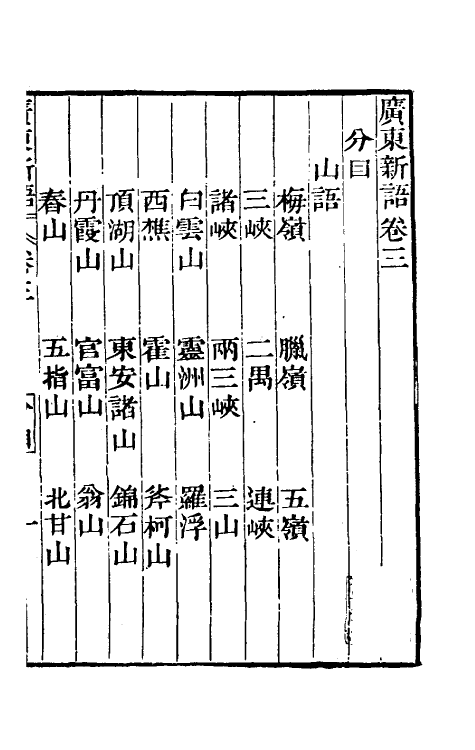 廣東新語卷三
分目
山語
梅嶺 臘嶺 五嶺
三峽 二禺 連峽
諸峽 兩三峽 三山
白雲山 靈洲山 羅浮
西樵 霍山 斧柯山
頂湖山 東安諸山 錦石山
丹霞山 官富山 翁山
春山 五指山 北甘山
廣東新語 卷三 分目 一